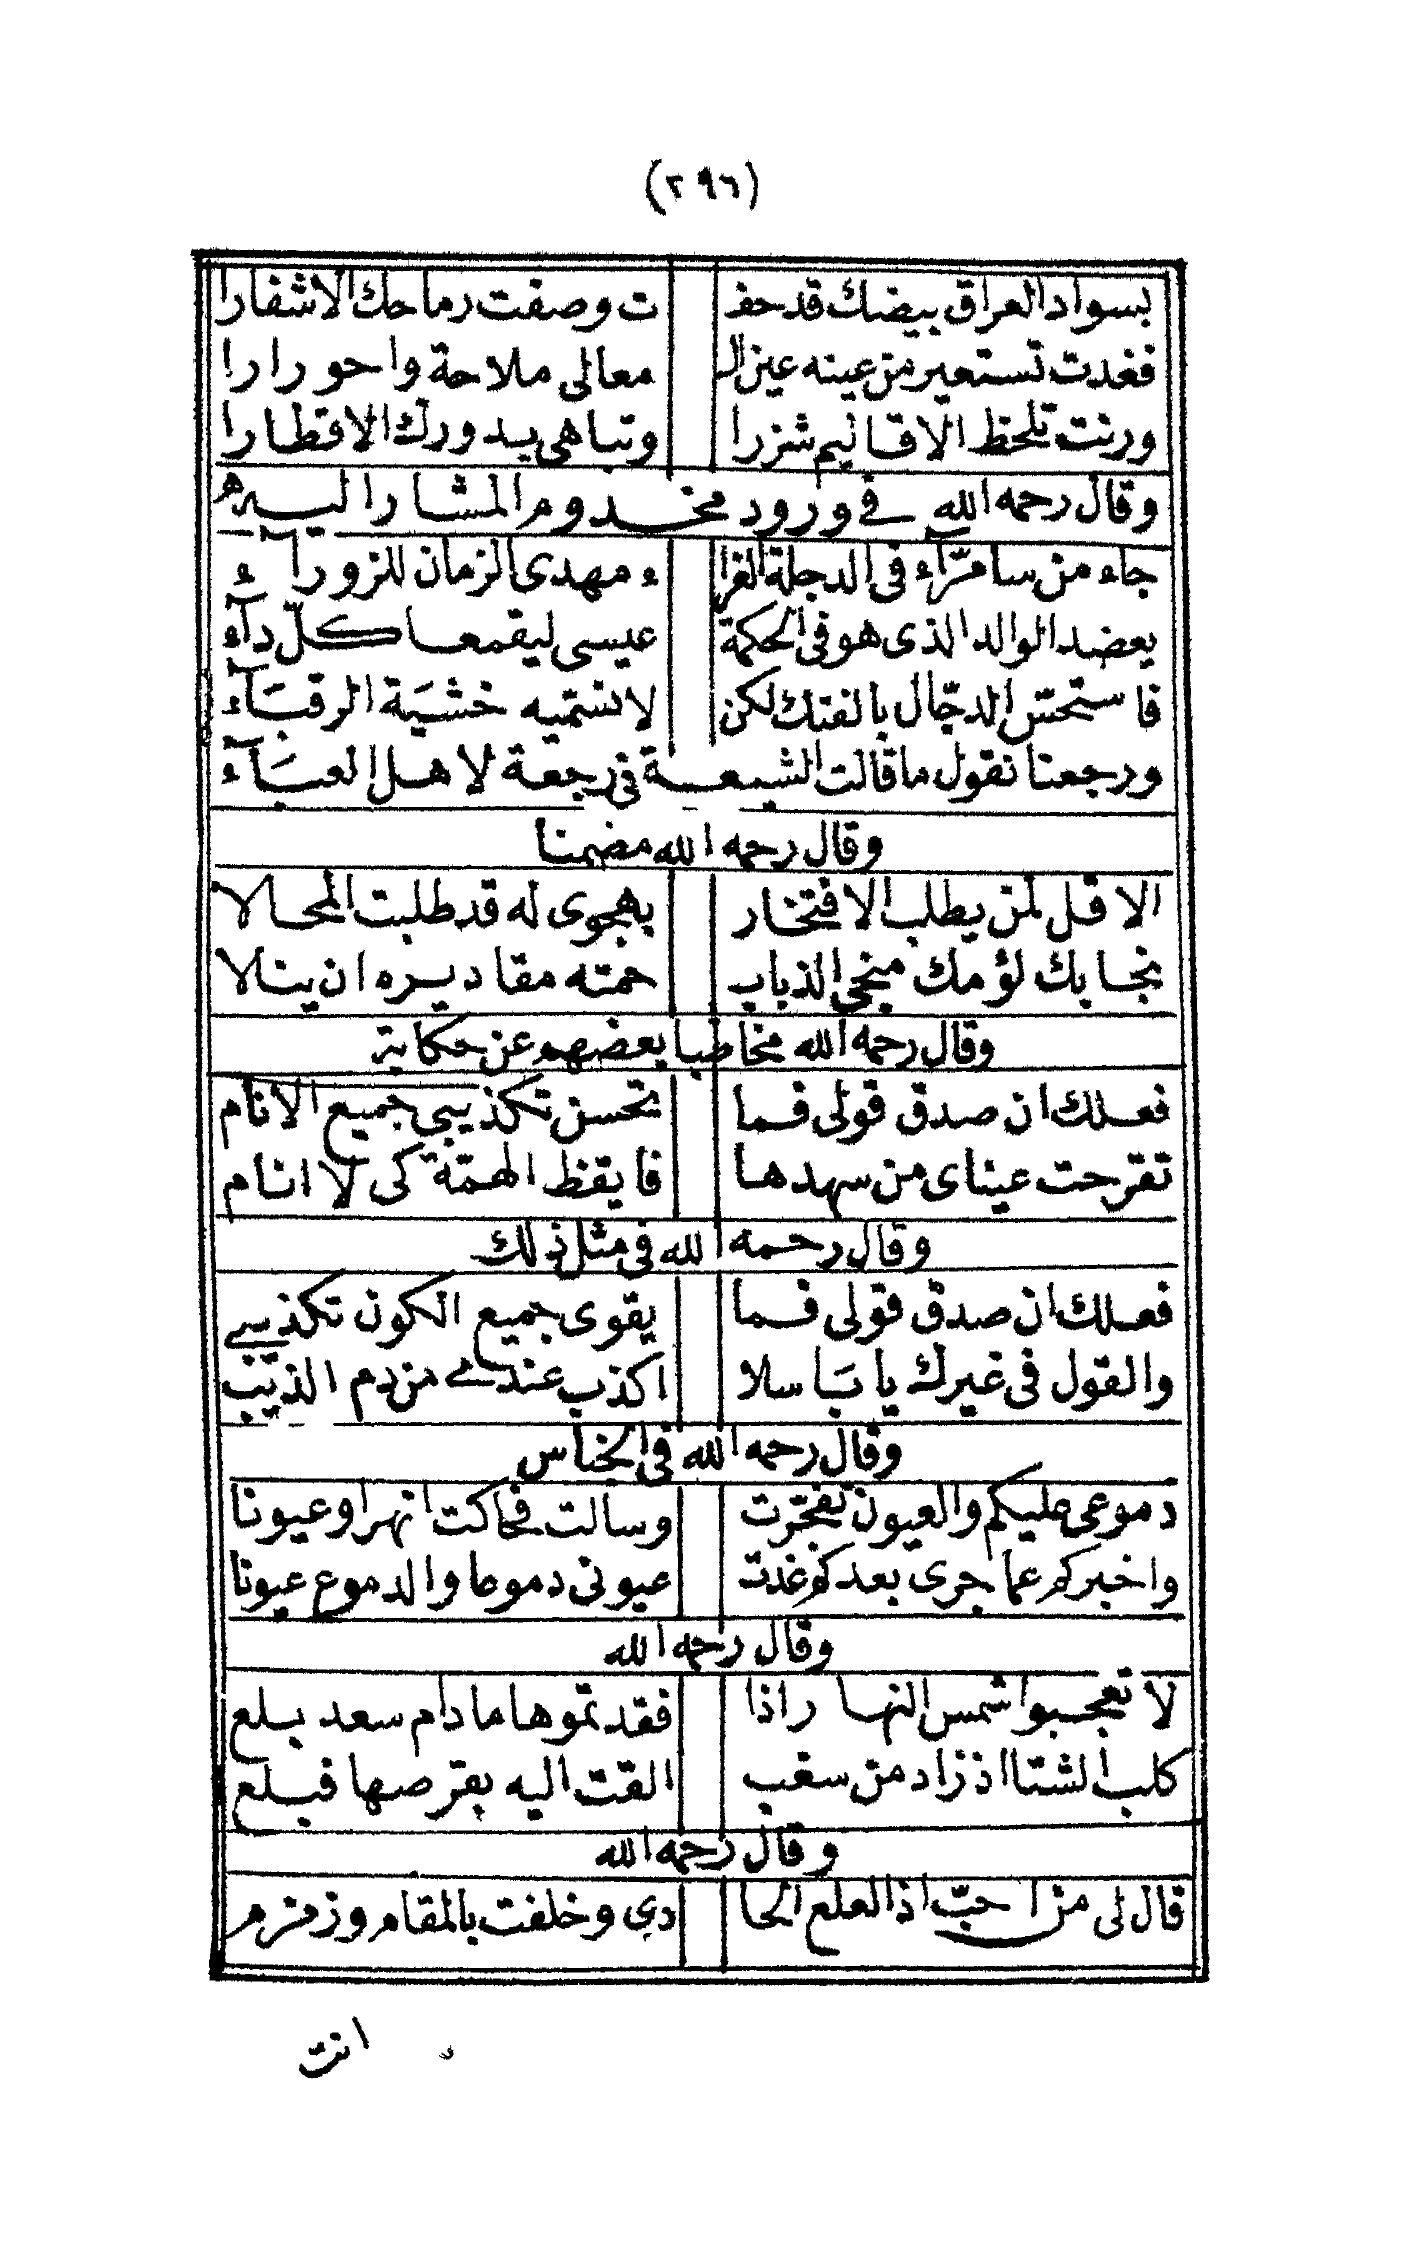 (٢٩٦)
بسواد العراق بيضك قد حفـ ت وصفت رماحك الاشفارا
فغدت تستعير من عينه عين الـ معالى ملاحة واحورارا
ورنت تلحظ الاقاليم شزرا وتباهى بدورك الاقطارا
وقال رحمه الله فى ورود مخدوم المشار اليه
جاء من سامرّآء فى الدجلة الغرا ء مهدى الزمان للزورآء
يعضد الوالد الذى هو فى الحكمة عيسى ليقمعا كلّ دآء
فاستحسّ الدجّال بالفتك لكن لا نسمّيه خشية الرقبآء
ورجعنا نقول ما قالت الشيعة فى رجعة لاهل العبآء
وقال رحمه الله مضمنا
الا قل لمن يطلب الافتخار بهجوى له قد طلبت المحالا
نجا بك لؤمك منجى الذباب حمته مقاديره ان ينالا
وقال رحمه الله مخاطبا بعضهم عن حكاية
فعلك ان صدق قولى فما يحسن تكذيبى جميع الانام
تقرحت عيناى من سهدها فايقظ الهمّة كى لا انام
وقال رحمه الله فى مثل ذلك
فعلك ان صدق قولى فما يقوى جميع الكون تكذيبى
والقول فى غيرك يا باسلا اكذب عندى من دم الذيب
وقال رحمه الله فى الجناس
دموعى عليكم والعيون تفجّرت وسالت فحاكت انهرا وعيونا
واخبركم عما جرى بعدكم غدت عيونى دموعا والدموع عيونا
وقال رحمه الله
لا تعجبوا شمس النهار اذا فقدتموها ما دام سعد بلع
كلب الشتا اذ زاد من سغب القت اليه بقرصها فبلع
وقال رحمه الله
قال لى من احبّ اذ العلع الحا دى وخلفت بالمقام وزمزم
انت